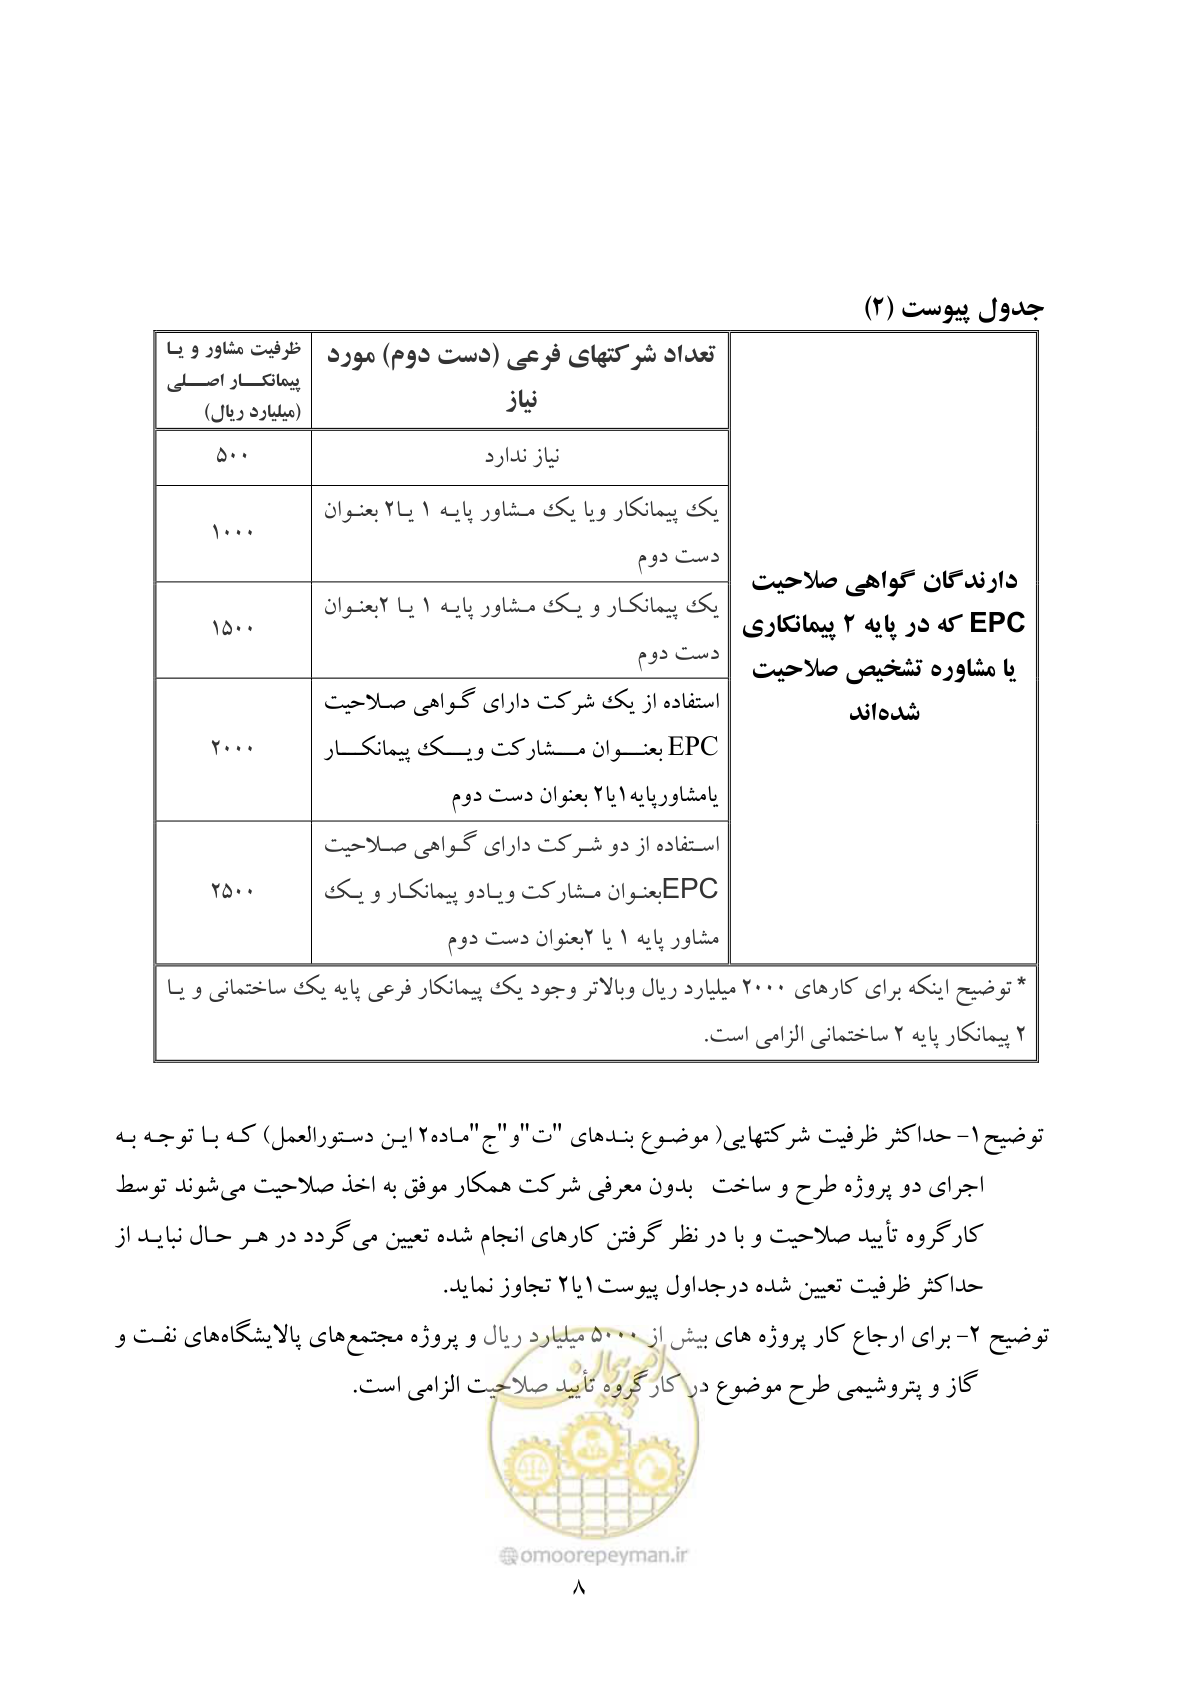 جدول پیوست (۲)
دارندگان گواهی صلاحیت
EPC که در پایه ۲ پیمانکاری
یا مشاوره تشخیص صلاحیت
شده‌اند
تعداد شرکتهای فرعی (دست دوم) مورد
نیاز
ظرفیت مشاور و یا
پیمانکار اصلی
(میلیارد ریال)
نیاز ندارد
۵۰۰
یک پیمانکار ویا یک مشاور پایه ۱ یا۲ بعنوان
دست دوم
۱۰۰۰
یک پیمانکار و یک مشاور پایه ۱ یا ۲بعنوان
دست دوم
۱۵۰۰
استفاده از یک شرکت دارای گواهی صلاحیت
EPC بعنوان مشارکت ویک پیمانکار
یامشاورپایه۱یا۲ بعنوان دست دوم
۲۰۰۰
استفاده از دو شرکت دارای گواهی صلاحیت
EPCبعنوان مشارکت ویادو پیمانکار و یک
مشاور پایه ۱ یا ۲بعنوان دست دوم
۲۵۰۰
* توضیح اینکه برای کارهای ۲۰۰۰ میلیارد ریال وبالاتر وجود یک پیمانکار فرعی پایه یک ساختمانی و یا
۲ پیمانکار پایه ۲ ساختمانی الزامی است.
توضیح۱- حداکثر ظرفیت شرکتهایی( موضوع بندهای "ت"و"ج"ماده۲ این دستورالعمل) که با توجه به
اجرای دو پروژه طرح و ساخت بدون معرفی شرکت همکار موفق به اخذ صلاحیت می‌شوند توسط
کارگروه تأیید صلاحیت و با در نظر گرفتن کارهای انجام شده تعیین می‌گردد در هر حال نباید از
حداکثر ظرفیت تعیین شده درجداول پیوست۱یا۲ تجاوز نماید.
توضیح ۲- برای ارجاع کار پروژه های بیش از ۵۰۰۰ میلیارد ریال و پروژه مجتمع‌های پالایشگاه‌های نفت و
گاز و پتروشیمی طرح موضوع در کارگروه تأیید صلاحیت الزامی است.
امور پیمان
@omoorepeyman.ir
۸